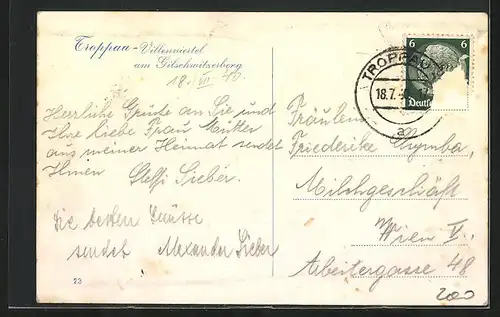 Troppau-Villenviertel
am Gilschwitzerberg
18. VII. 40.
Herrliche Grüße an Sie und
Ihre liebe Frau Mutter
aus meiner Heimat sendet
Ihnen Steffi Sieber.
Die besten Grüsse
sendet Alexander Sieber
23
6 6
TROPPAU
18.7.
a
Fräulein
Friederike
Milchgeschäft
Wien V.,
Arbeitergasse 48
200